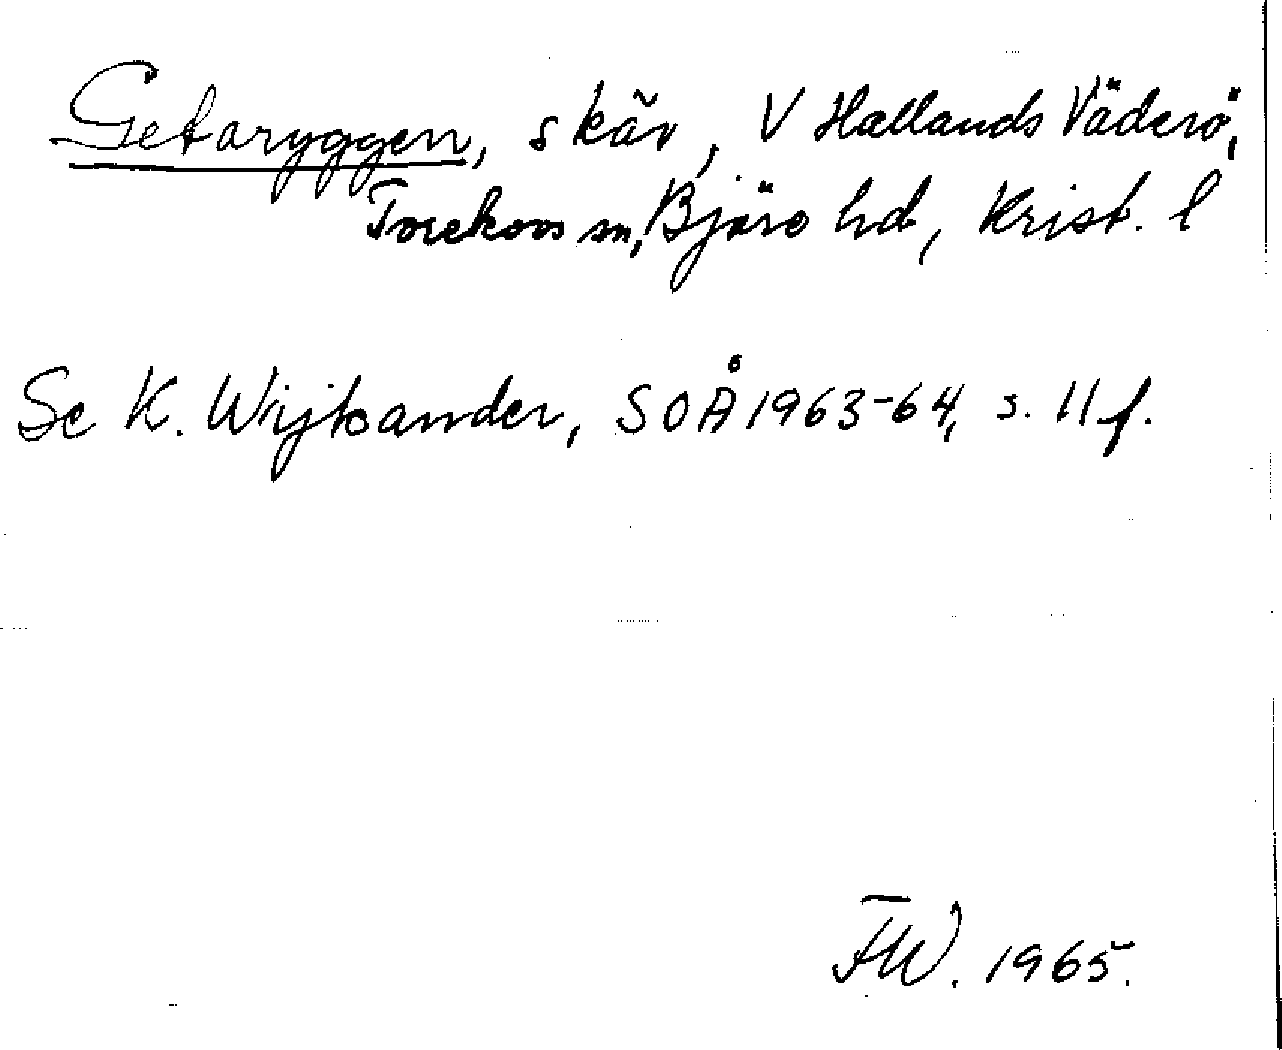 Getaryggen, skär, V Hallands Väderö,
Torekovs sn, Bjäre hd, Krist. l
Se K. Wijkander, SOÅ 1963-64, s. 11 f.
FW. 1965.